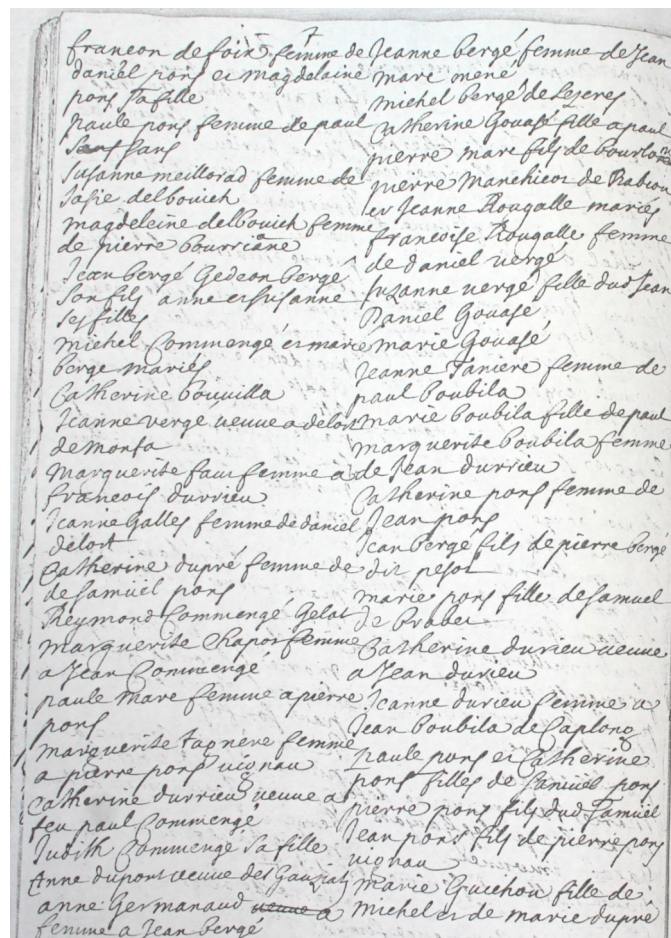 francon de foix femme de
daniel pons et magdelaine
pons sa fille
paule pons femme de paul
sans
susanne meillorad femme de
delbouich
magdeleine delbouich femme
de pierre bourriane
Jean bergé Gedeon bergé
son fils anne et susanne
ses filles
michel Commengé et marie
berge mariés
Catherine bouvilla
Jeanne vergé veuve a delort
de monfa
Marguerite faur femme a
francois durrieu
Jeanne Galles femme de daniel
delort
Catherine dupré femme de
de samuel pons
Reymond Commengé Gelat
marguerite Chapor femme
a Jean Commengé
paule mare femme a pierre
pons
marguerite tapnere femme
a pierre pons vignau
Catherine durrieu veuve a
feu paul Commenge
Judith Commengé sa fille
Anne dupont veuve de
anne Germanaud veuve a
femme a Jean bergé
Jeanne bergé femme de Jean
marc mené
michel bergé de Lezeres
Catherine Gouasé fille a paul
pierre marc fils de
pierre Manchicot de Rabiou
et Jeanne Rougalle mariés
francoise Rougalle femme
de daniel vergé
suzanne vergé fille dud Jean
Daniel Gouasé
marie Gouasé
Jeanne Taniere femme de
paul boubila
marie boubila fille de paul
marguerite boubila femme
de Jean durrieu
Catherine pons femme de
Jean pons
Jean bergé fils de pierre bergé
dit pesot
marie pons fille de samuel
de brabet
Catherine durieu veuve
a Jean durieu
Jeanne durieu femme a
Jean boubila de Caplong
paule pons et Catherine
pons filles de samuel pons
pierre pons fils dud samuel
Jean pons fils de pierre pons
vignau
marie Guichou fille de
Michel et de marie dupré